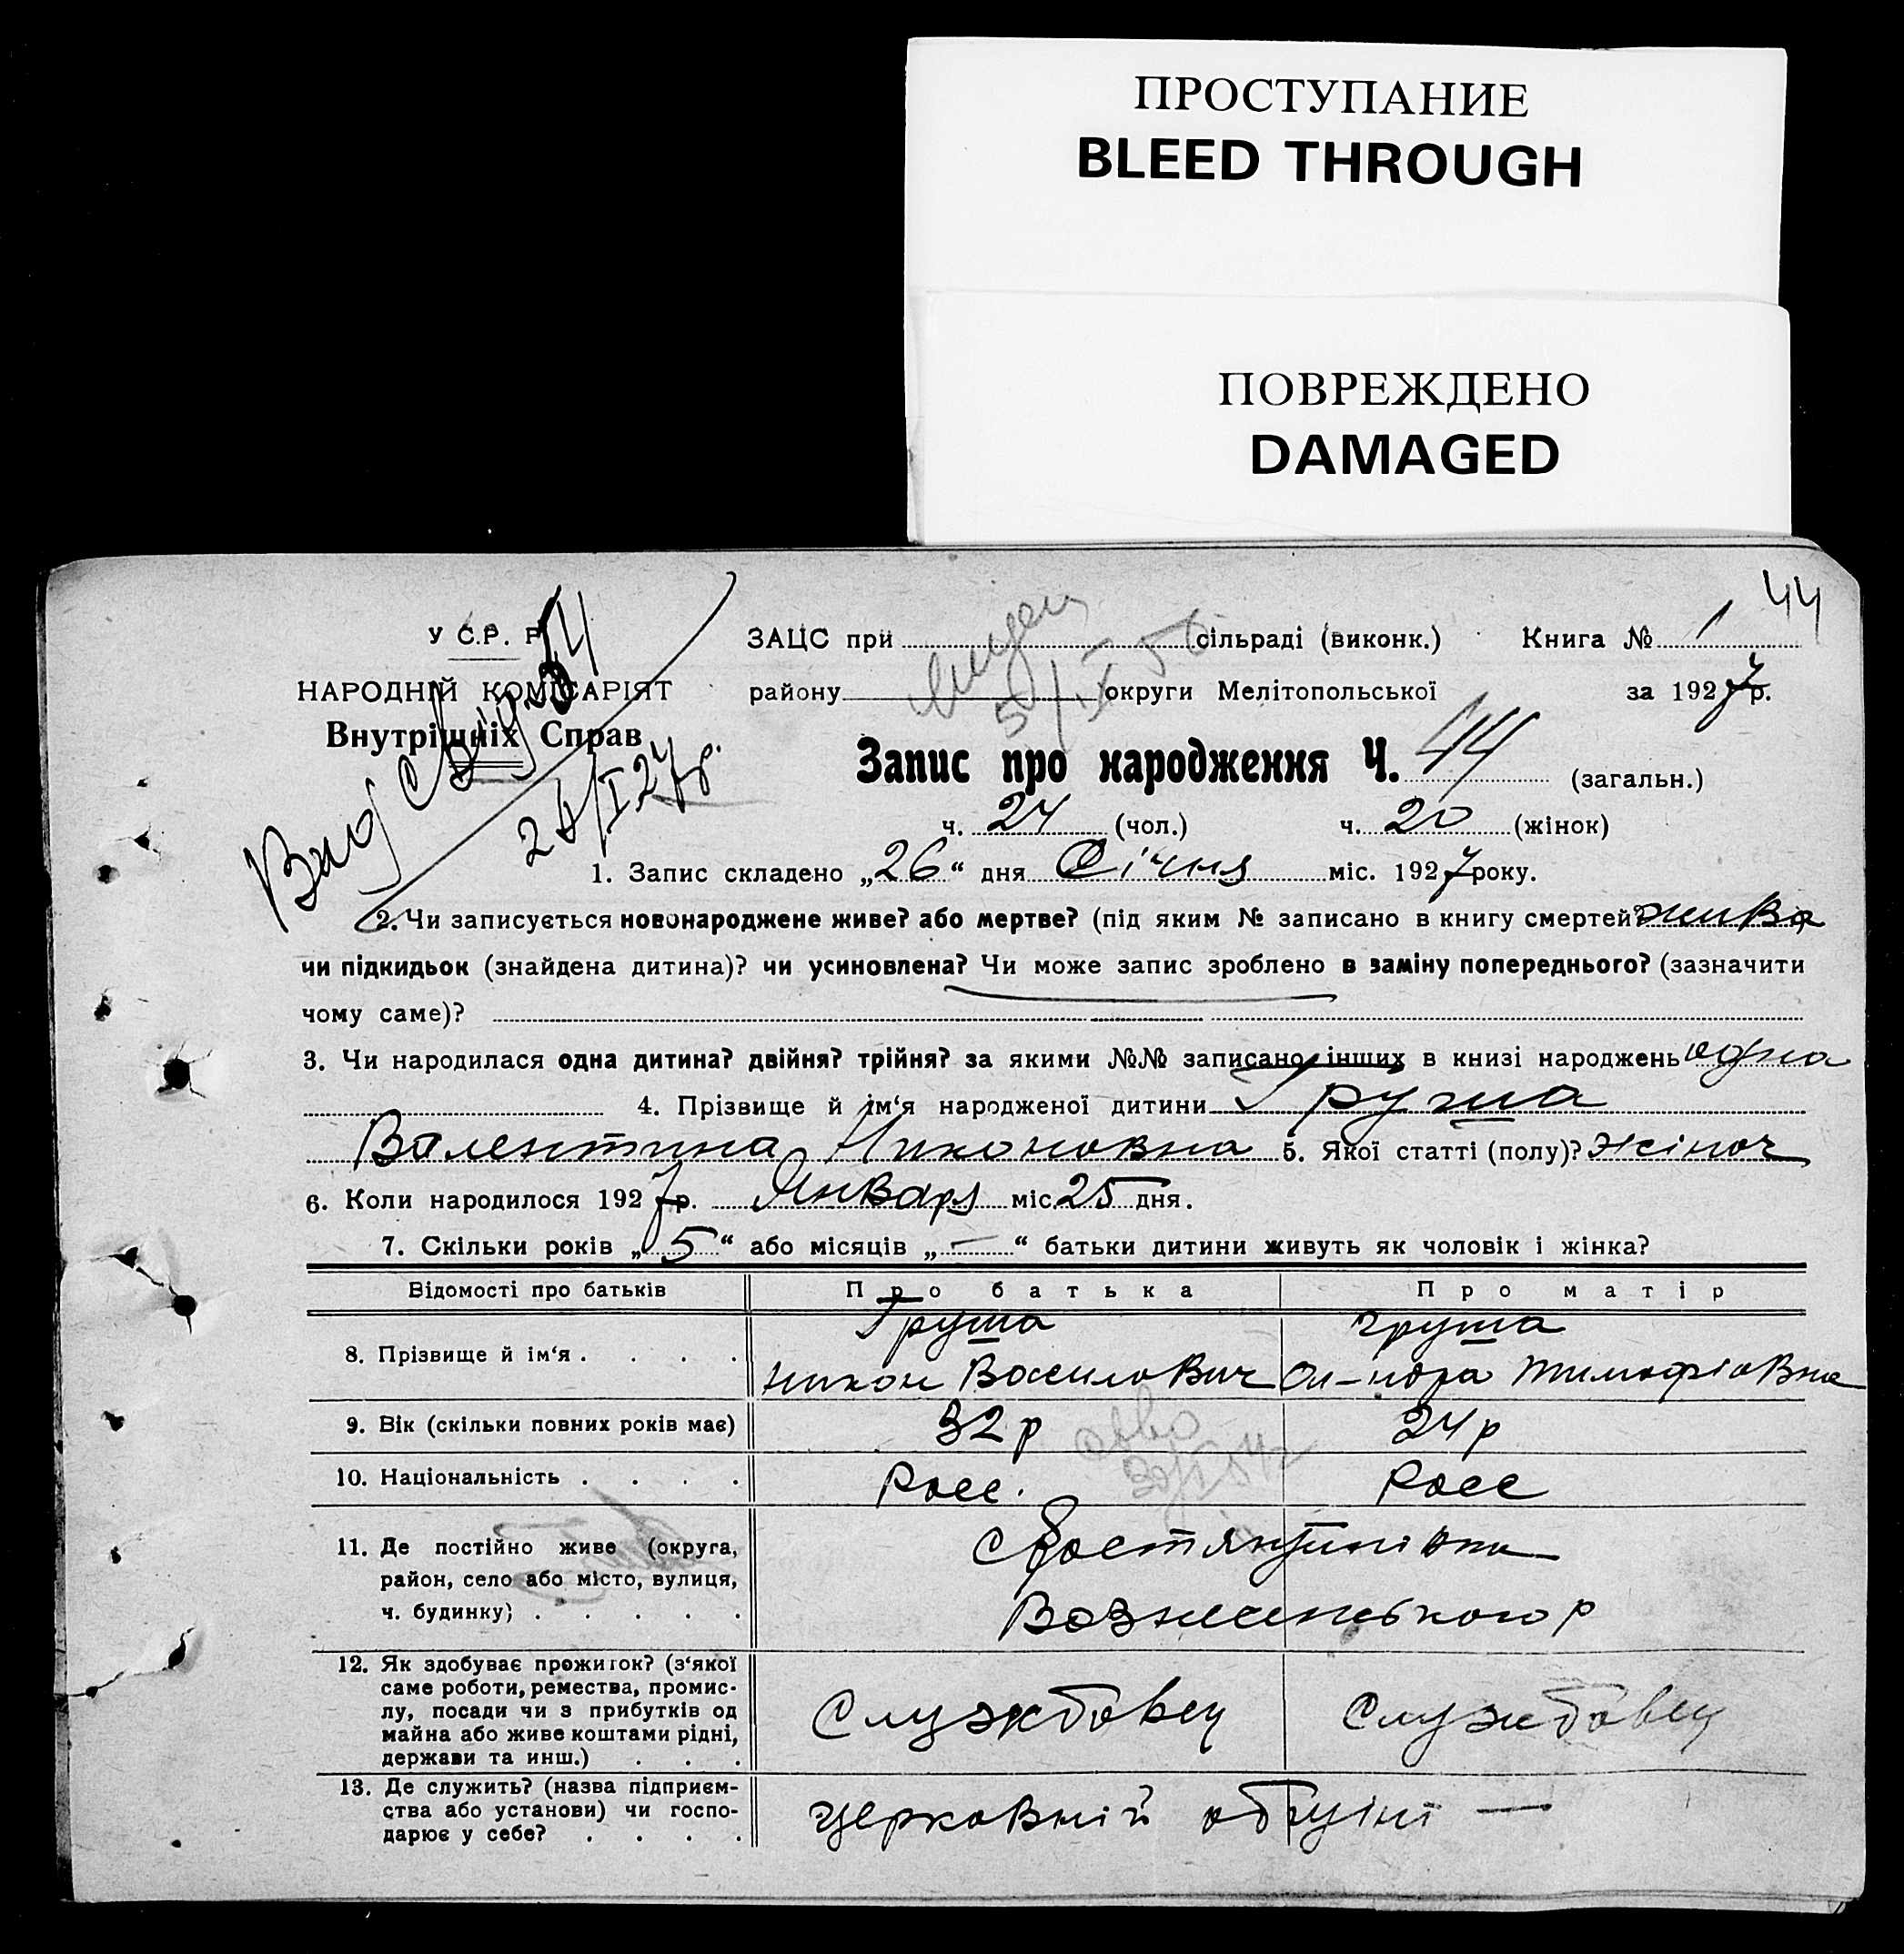 ПРОСТУПАНИЕ
BLEED THROUGH
ПОВРЕЖДЕНО
DAMAGED
44
У С.Р. Р.
НАРОДНІЙ КОМІСАРІЯТ
Внутрішніх Справ
26/I 27 р.
ЗАЦС при сільраді (виконк.) Книга № 1
району округи Мелітопольської за 1927 р.
Запис про народження Ч. 44 (загальн.)
ч. 24 (чол.) ч. 20 (жінок)
1. Запис складено „26“ дня Січня міс. 1927 року.
2. Чи записується новонароджене живе? або мертве? (під яким № записано в книгу смертей? жива
чи підкидьок (знайдена дитина)? чи усиновлена? Чи може запис зроблено в заміну попереднього? (зазначити
чому саме)?
3. Чи народилася одна дитина? двійня? трійня? за якими №№ записано інших в книзі народжень одна
4. Прізвище й ім‘я народженої дитини Груша
Валентина Никоновна 5. Якої статті (полу)? жіноч
6. Коли народилося 1927 р. Января міс. 25 дня.
7. Скільки років „5“ або місяців „—“ батьки дитини живуть як чоловік і жінка?
Відомості про батьків Про батька Про матір
8. Прізвище й ім‘я . . . . Груша Груша
Никон Василович Ол-ндра Тимофіовна
9. Вік (скільки повних років має) 32 р 24 р
10. Національність . . . . Росс. Росс
11. Де постійно живе (округа,
район, село або місто, вулиця,
ч. будинку) . . . . .
с Костянтинівка
Вознесенського р
12. Як здобуває прожиток? (з‘якої
саме роботи, ремества, промис-
лу, посади чи з прибутків од
майна або живе коштами рідні,
держави та инш.) . . .
Службовец Службовец
13. Де служить? (назва підприєм-
ства або установи) чи госпо-
дарює у себе? . . . .
церковній общіні —